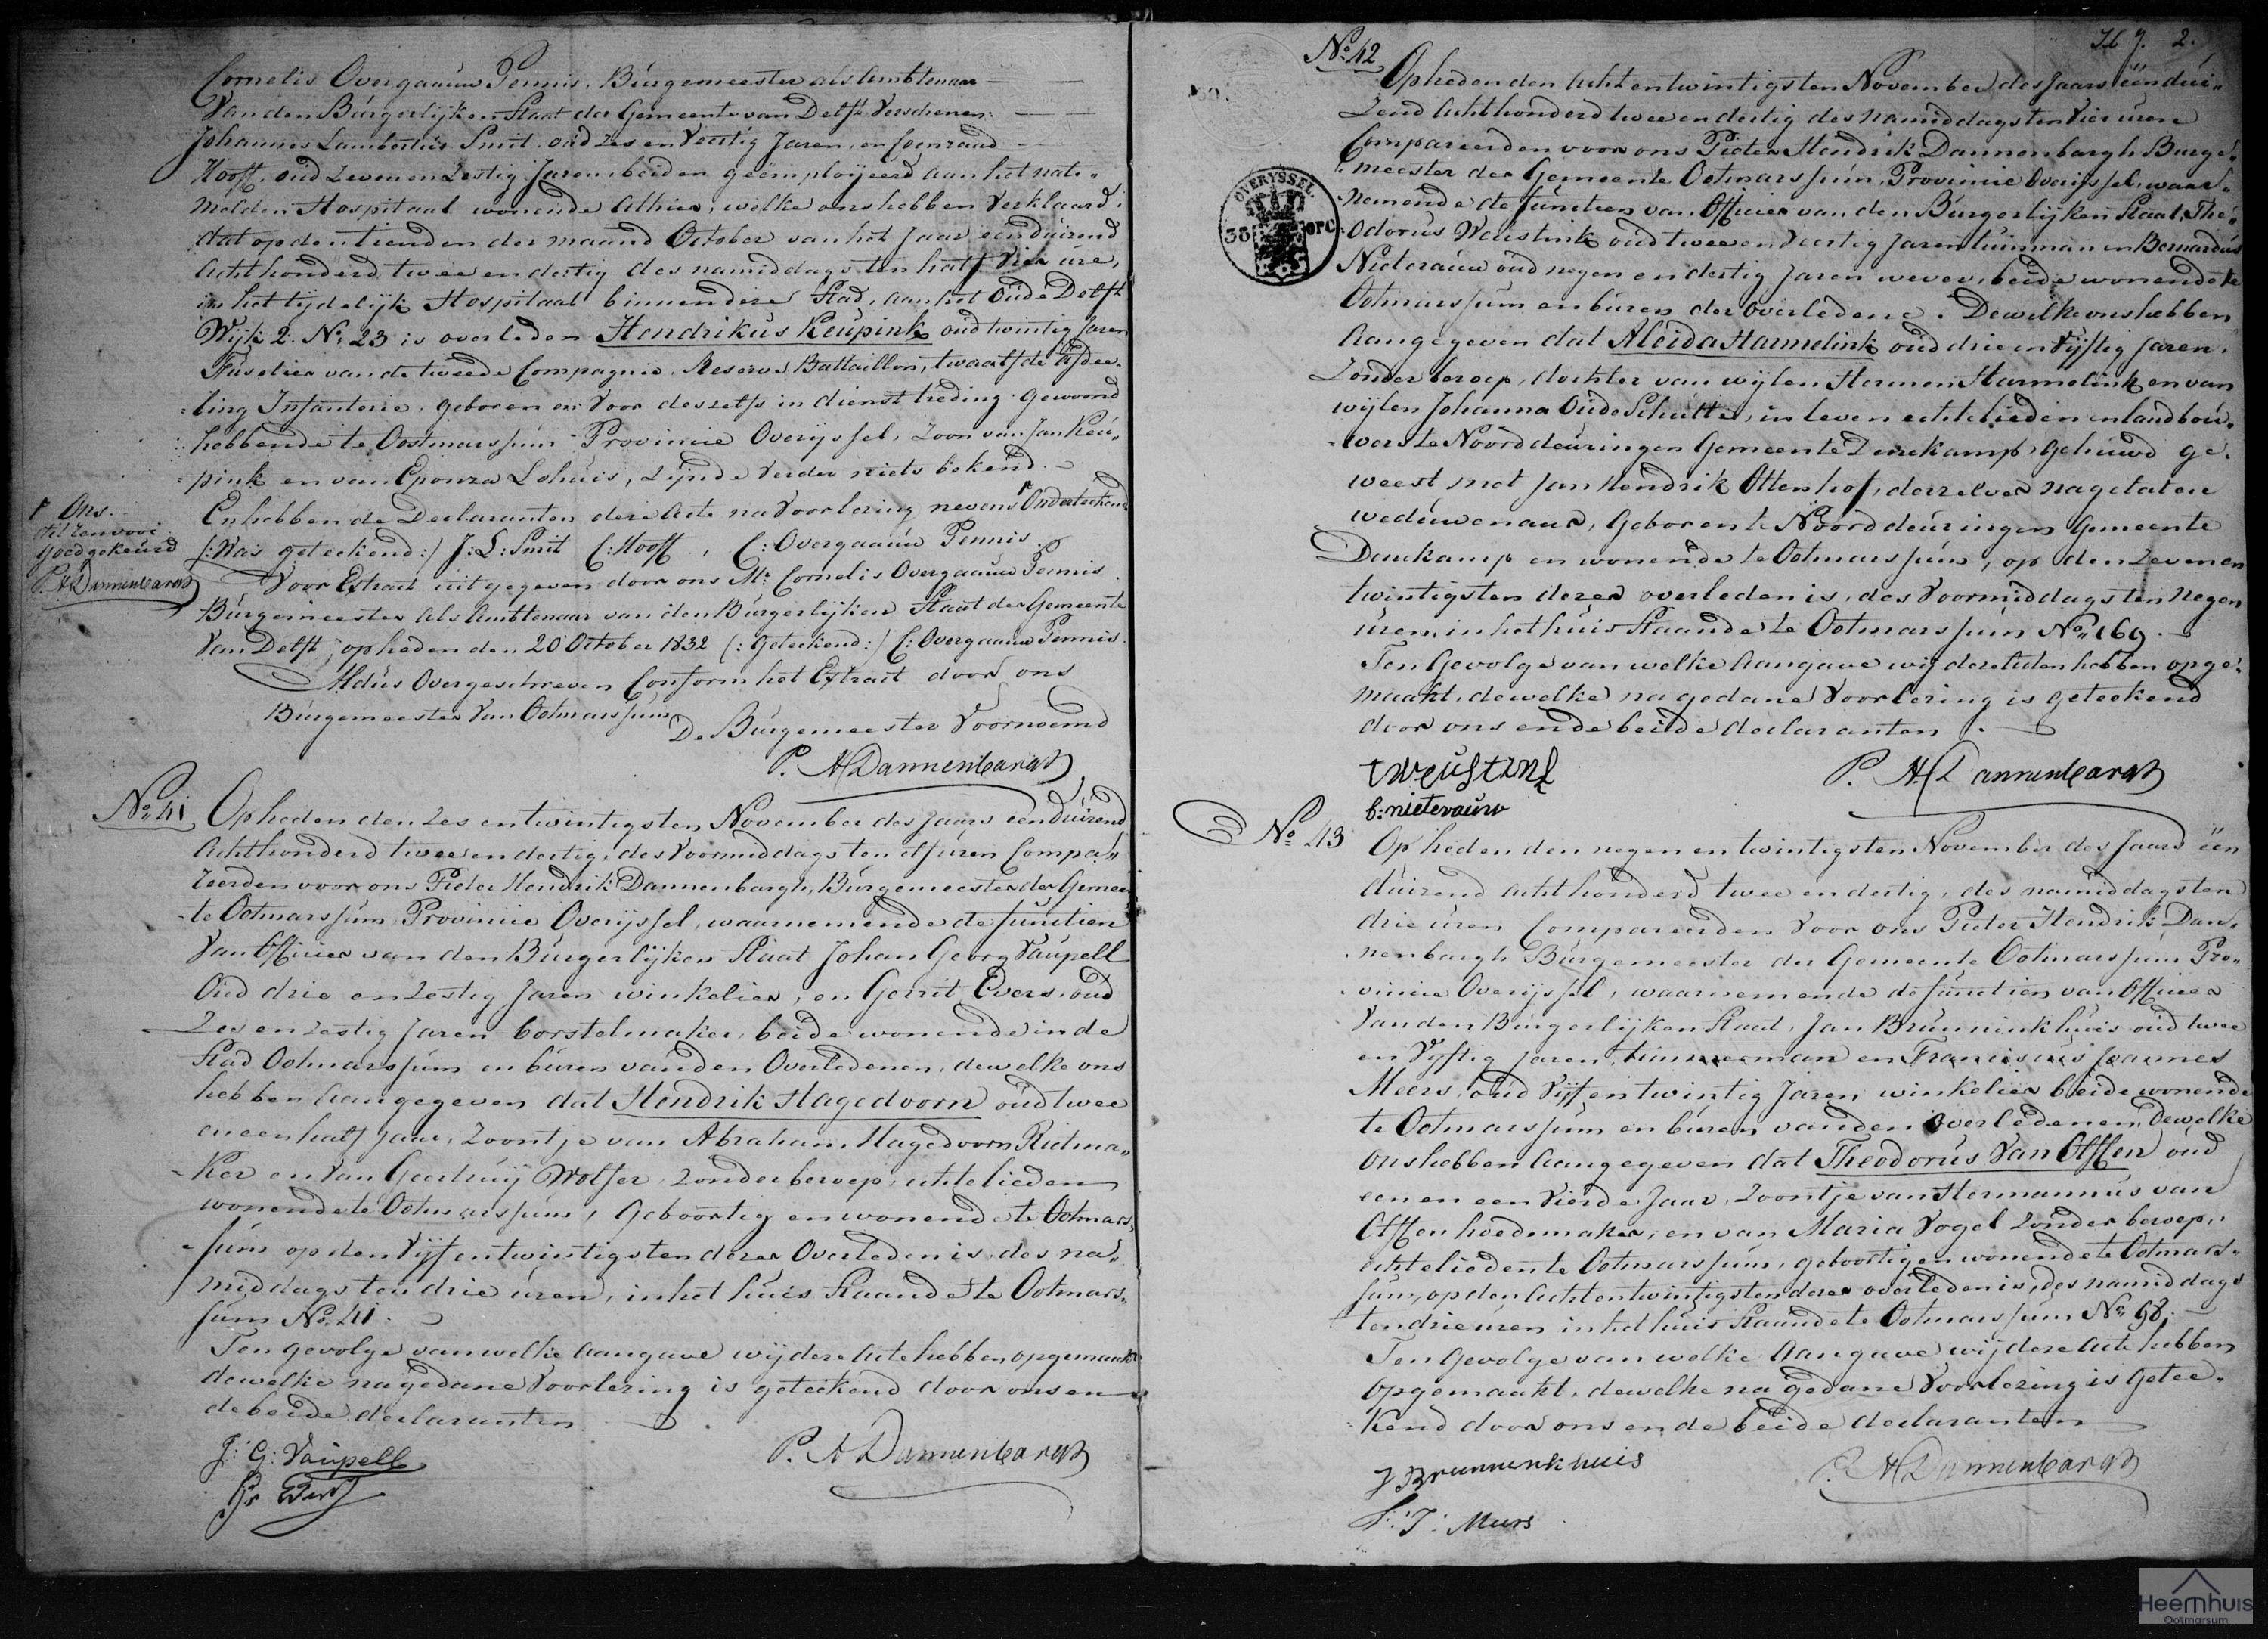 Cornelis Overgaauw Pennis, Burgemeester als Ambtenaar
Van den Burgerlijken Staat der Gemeente van Delft Verschenen:
Johannes Lambertus Smit oud zes en Veertig Jaren, en Coenraad
Hooft, oud zeven en Zestig Jaren beiden geëmploijeerd aan het nate-
melden Hospitaal wonende Alhier, welke ons hebben Verklaard,
dat op den tienden der maand October van het Jaar een duizend
Acht honderd twee en dertig des namiddags ten half Vier ure,
in het tijdelijk Hospitaal binnen deze Stad, aan het Oude Delft
Wijk 2. No. 23 is overleden Hendrikus Keupink oud twintig Jaren
Fuselier van de tweede Compagnie, Reserve Battaillon, twaalfde Afdee-
ling Infanterie, geboren en Voor deszelfs in dienst treding gewoond
hebbende te Ootmarssum Provincie Overijssel, Zoon van Jan Keu-
pink en van Lohuis, zijnde Verder niets bekend.
En hebben de Declaranten deze Acte na Voorlezing nevens Onderteekend
Ons.
goedgekeurd
P. H. Dannenbargh
(: Was geteekend :) J: L: Smit C: Hooft, C: Overgaauw Pennis.
Voor Extract uitgegeven door ons Mr. Cornelis Overgaauw Pennis
Burgemeester Als Ambtenaar van den Burgerlijken Staat der Gemeente
Van Delft, op heden den 20 October 1832 (: Geteekend :) C: Overgaauw Pennis.
Aldus Overgeschreven Conform het Extract door ons
Burgemeester Van Ootmarssum
De Burgemeester Voornoemd
P. H. Dannenbargh
No. 41 Op heden den zes en twintigsten November des Jaars een Duizend
Achthonderd twee en dertig, des Voormiddags ten elf uren Compa-
reerden voor ons Pieter Hendrik Dannenbargh, Burgemeester der Gemeen-
te Ootmarssum Provincie Overijssel, waarnemende de functien
Van Officier van den Burgerlijken Staat Johan Georg Vaupell
Oud drie en zestig Jaren winkelier, en Gerrit Evers oud
Zes en zestig Jaren borstelmaker, beide wonende in de
Stad Ootmarssum en buren van den Overledenen, dewelke ons
hebben Aangegeven dat Hendrik Hagedoorn oud twee
en een half Jaar, Zoontje van Abraham Hagedoorn Rietma-
ker en van Geertruij Wolfer, zonder beroep, echtelieden
wonende te Ootmarssum, Geboortig en wonende te Ootmars-
sum op den Vijf en twintigsten dezer Overleden is des na-
middags ten drie uren, in het huis Staande te Ootmars-
sum No. 41.
Ten gevolge van welke Aangave wij deze Acte hebben opgemaakt
dewelke na gedane Voorlezing is geteekend door ons en
de beide declaranten
J: G: Vaupell
P. H. Dannenbargh
No. 42
2.
Op heden den Acht en twintigsten November des Jaars een dui-
zend Achthonderd twee en dertig des namiddags ten Vier uren
Compareerden voor ons Pieter Hendrik Dannenbargh Burge-
meester der Gemeente Ootmarssum, Provincie Overijssel, waar-
nemende de functien van Officier van den Burgerlijken Staat, The-
odorus Weustink oud twee en Veertig Jaren tuinman en Bernardus
Nieterauw oud negen en dertig Jaren wever, beide wonende te
Ootmarssum en buren der Overledene. Dewelke ons hebben
Aangegeven dat Aleida Harmelink oud drie en Vijftig Jaren,
Zonder beroep, dochter van wijlen Hermen Harmelink en van
wijlen Johanna Oude Schutte, in leven echtelieden en landbou-
wers te Noorddeuringen Gemeente Denekamp, Gehuwd ge-
weest met Jan Hendrik Ottenhof, derzelver nagelaten
weduwenaar, Geboren te Noorddeuringen Gemeente
Denekamp en wonende te Ootmarssum, op den zeven en
twintigsten dezer overleden is, des Voormiddags ten negen
uren, in het huis Staande te Ootmarssum No. 169.
Ten Gevolge van welke Aangave wij deze Acten hebben opge-
maakt, dewelke na gedane Voorlezing is geteekend
door ons en de beide declaranten
OVERYSSEL
38 OPC
t weustink
P. H. Dannenbargh
b: nieterauw
No. 43 Op heden den negen en twintigsten November des Jaars een
duizend Achthonderd twee en dertig, des namiddags ten
drie uren Compareerden Voor ons Pieter Hendrik Dan-
nenbargh Burgemeester der Gemeente Ootmarssum Pro-
vincie Overijssel, waarnemende de functien van Officier
Van den Burgerlijken Staat, Jan Brunninkhuis oud twee
en Vijftig Jaren, timmerman en Franciscus Joannes
Meers, oud Vijf en twintig Jaren winkelier beide wonende
te Ootmarssum en buren van den Overledenen, Dewelke
ons hebben Aangegeven dat Theodorus Van Olffen oud
een en een Vierde Jaar, Zoontje van Hermannus van
Olffen hoedemaker, en van Maria Vogel zonder beroep,
echtelieden te Ootmarssum, geboortig en wonende te Ootmars-
sum, op den Acht en twintigsten dezer overleden is, des namiddags
ten drie uren in het huis Staande te Ootmarssum No. 98.
Ten Gevolge van welke Aangave wij deze Acte hebben
Opgemaakt, dewelke na gedane Voorlezing is Getee-
kend door ons en de beide declaranten
J Brunninkhuis
P. H. Dannenbargh
F: J: Meers
Heemhuis
Ootmarsum